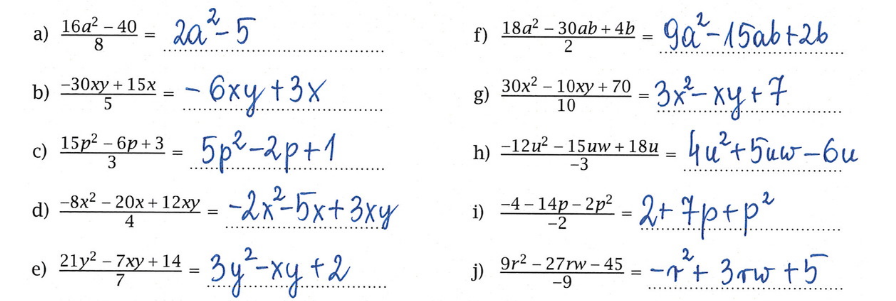 a) (16a² – 40)/8 = 2a² – 5
b) (–30xy + 15x)/5 = – 6xy + 3x
c) (15p² – 6p + 3)/3 = 5p² – 2p + 1
d) (–8x² – 20x + 12xy)/4 = –2x² – 5x + 3xy
e) (21y² – 7xy + 14)/7 = 3y² – xy + 2
f) (18a² – 30ab + 4b)/2 = 9a² – 15ab + 2b
g) (30x² – 10xy + 70)/10 = 3x² – xy + 7
h) (–12u² – 15uw + 18u)/–3 = 4u² + 5uw – 6u
i) (–4 – 14p – 2p²)/–2 = 2 + 7p + p²
j) (9r² – 27rw – 45)/–9 = –r² + 3rw + 5